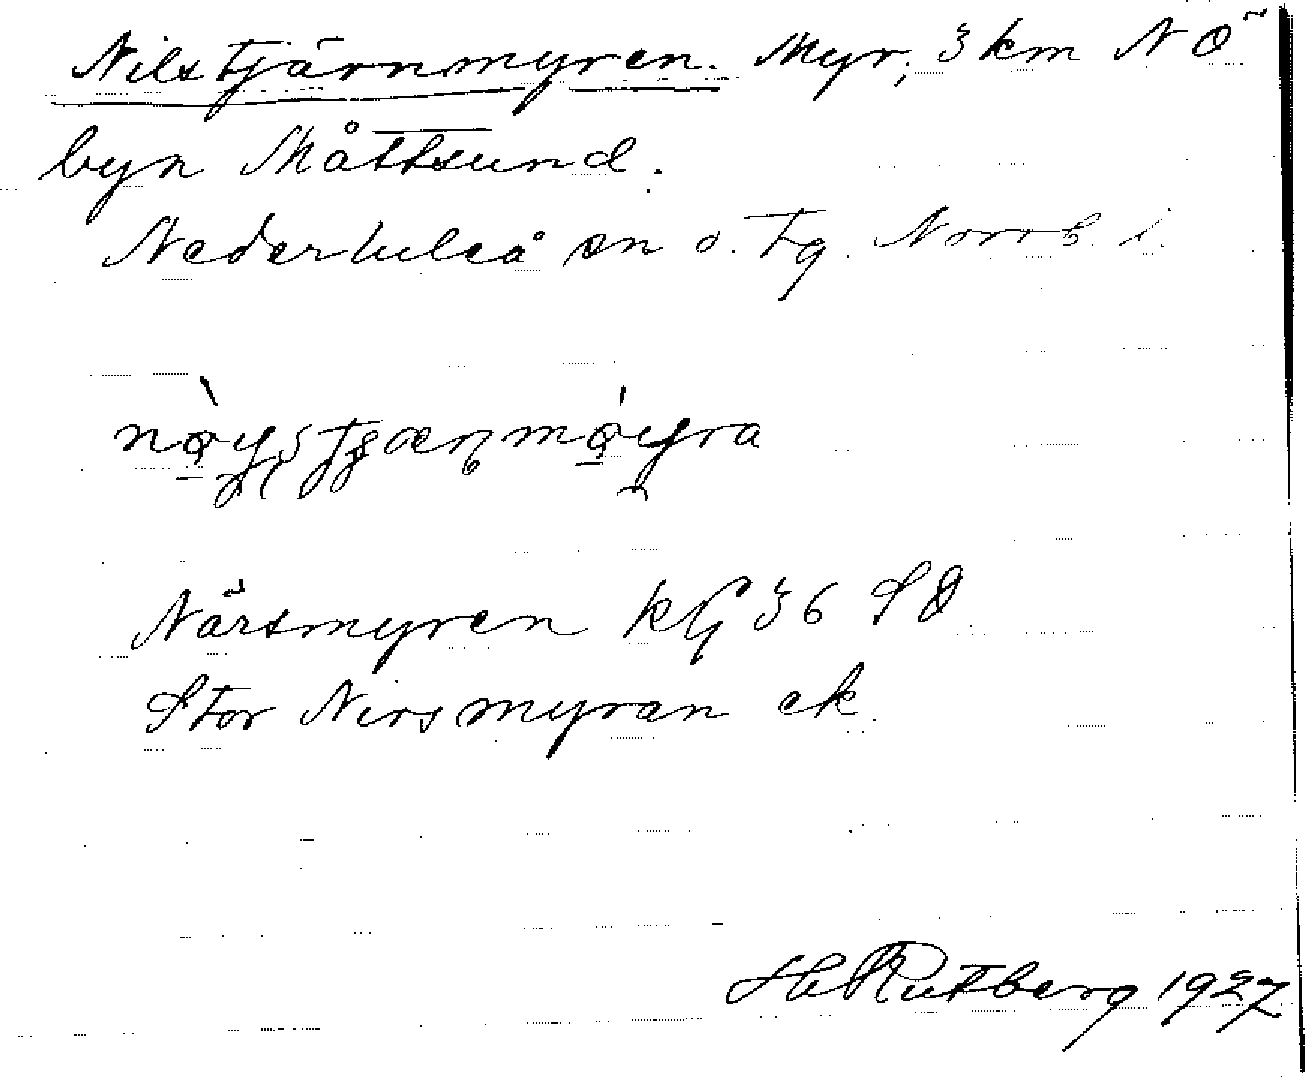 Nilstjärnmyren. Myr, 3 km NÖ
byn Måttsund.
Nederluleå sn o. tg. Norrb. l.
Närsmyren kG 36 SO
Stor Nirsmyran ek.
H Rutberg 1927